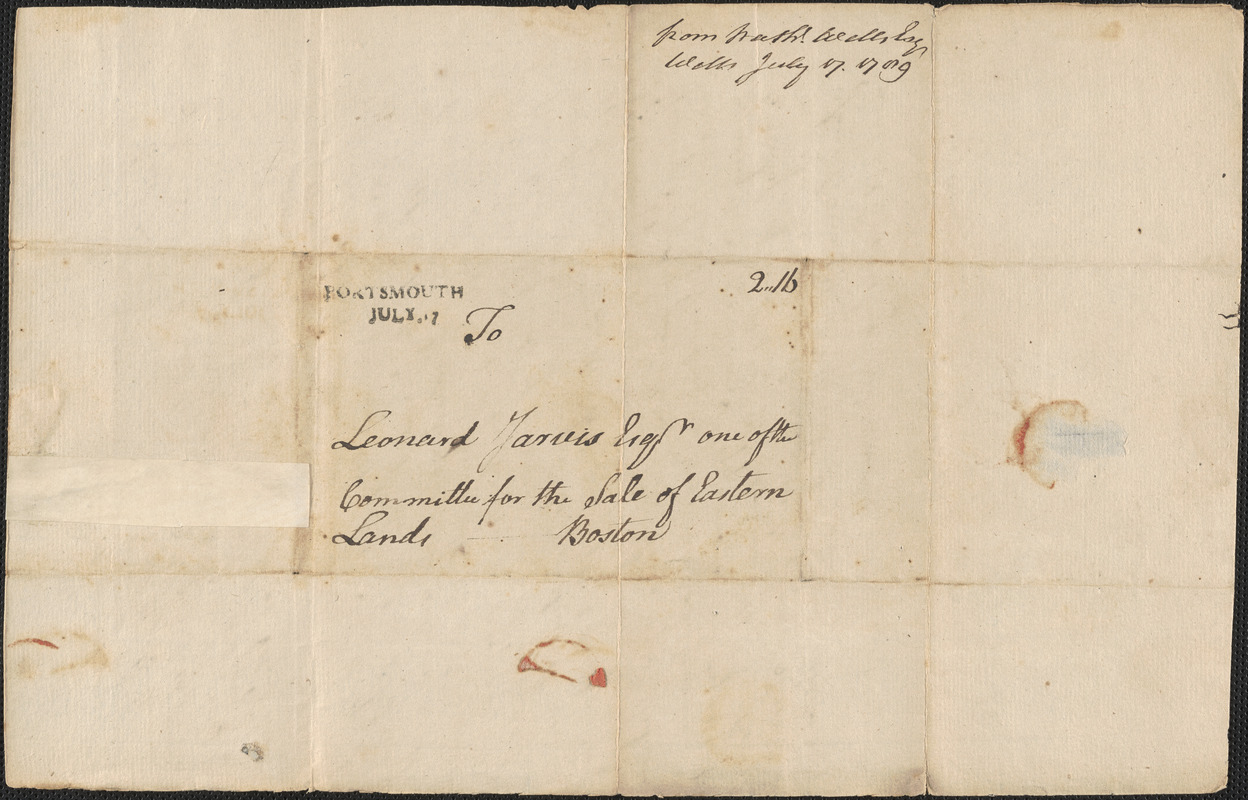 from Nathl. Wells Esqr
Wells July 17. 1789
PORTSMOUTH
JULY
2..16
To
Leonard Jarvis Esqr one of the
Committee for the Sale of Eastern
Lands Boston